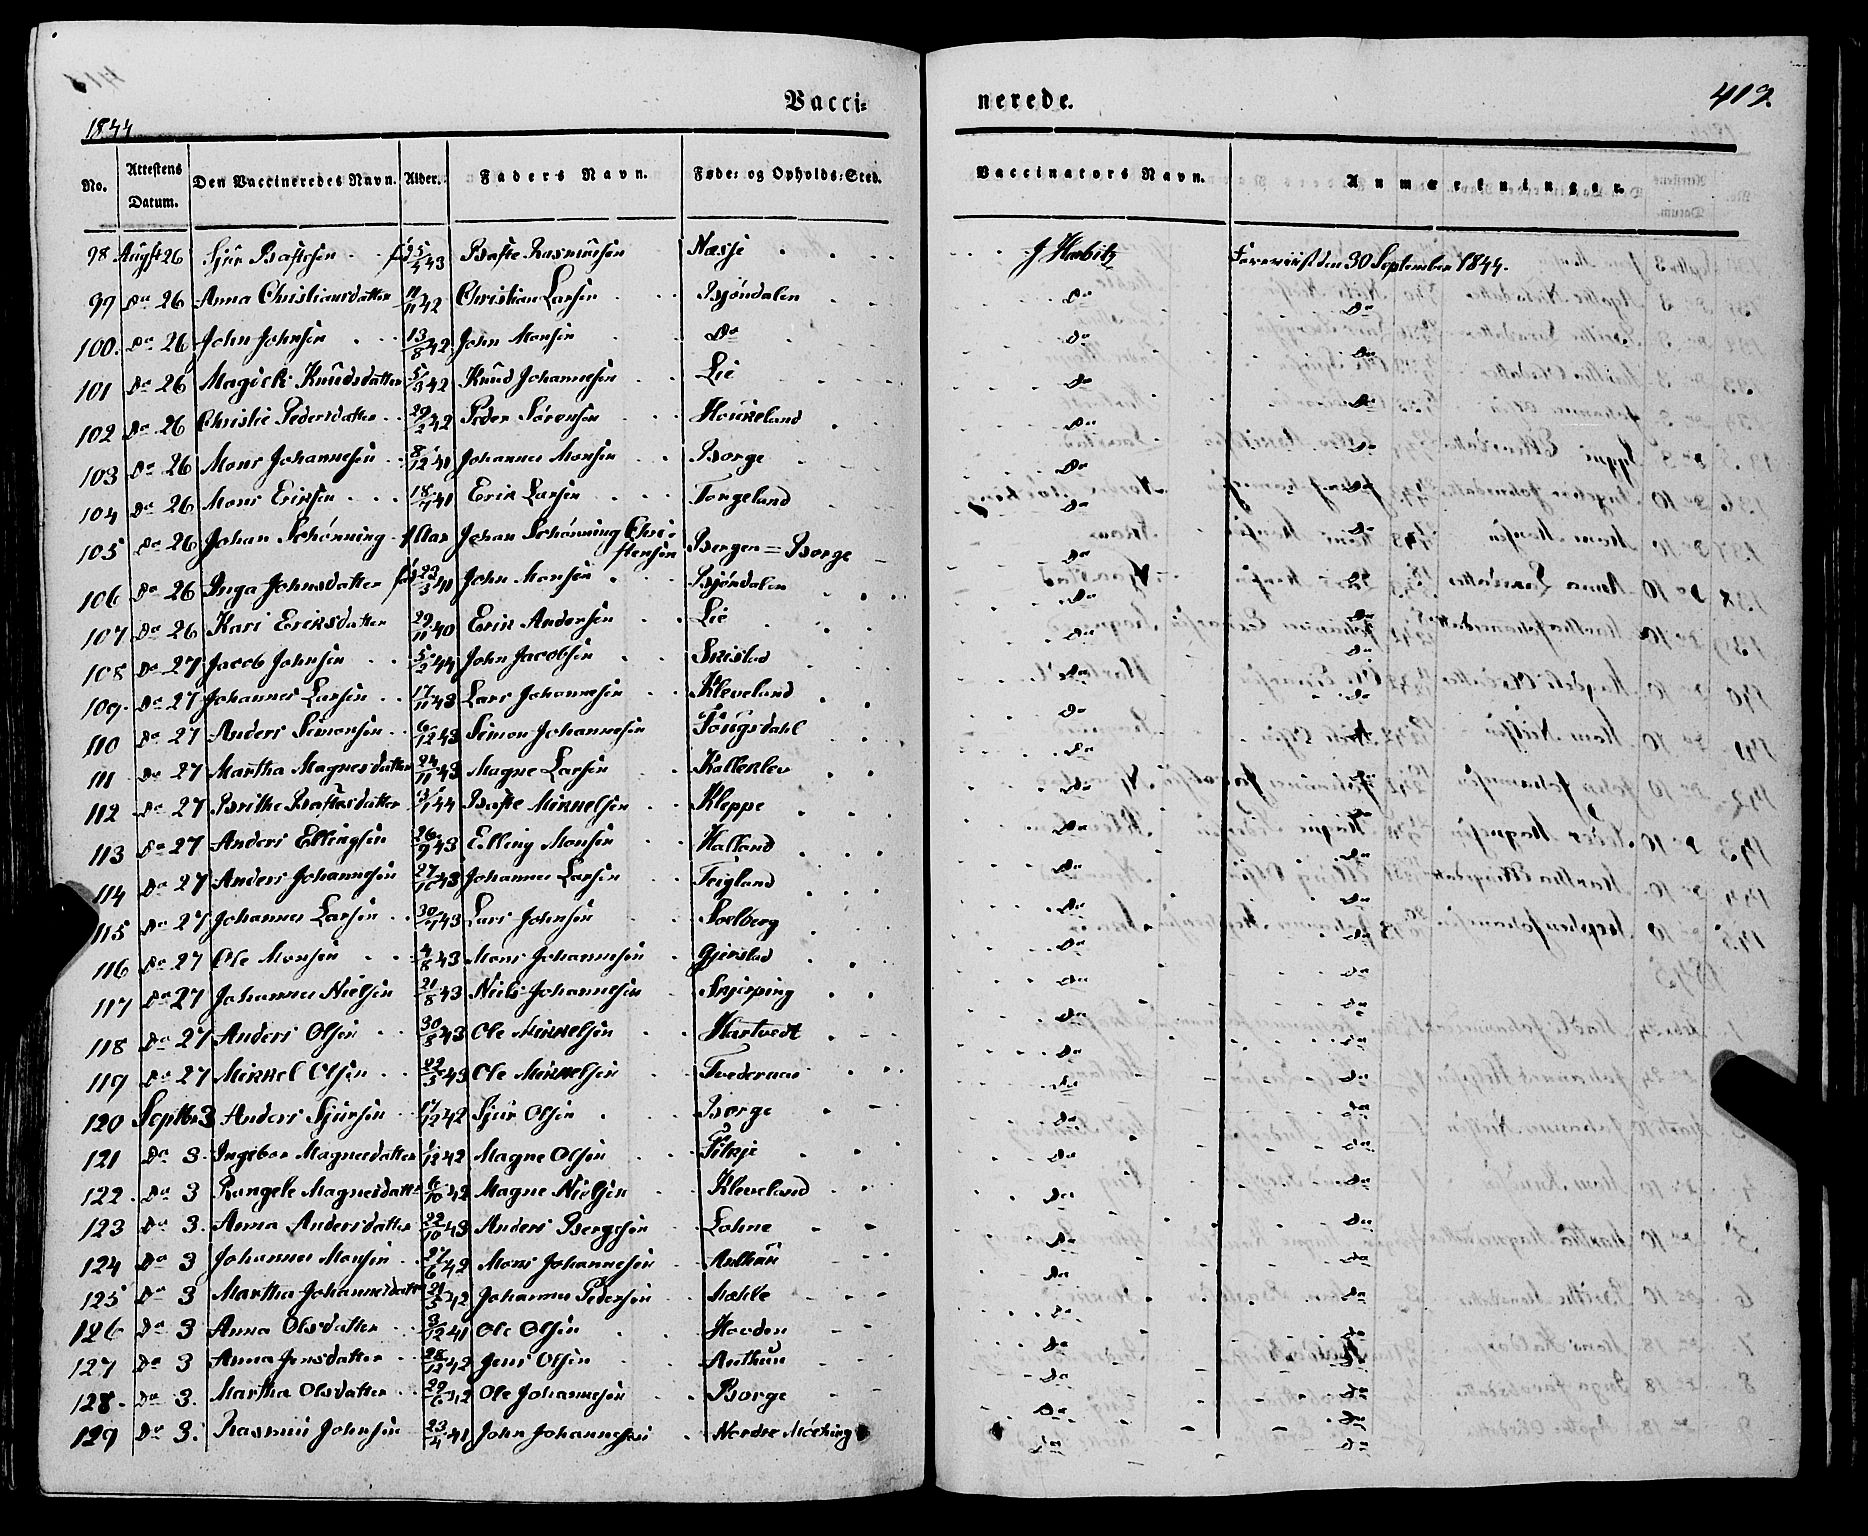 Vacci=
nerede.
419.
1844
No. Attestens Datum. Den Vaccineredes Navn. Alder. Faders Navn. Føde- og Opholds-Sted. Vaccinators Navn. Anmærkninger.
98 Augst 26 Sjur Baftesen fd 43 Bafte Rasmusen Næsje J Harbitz Foreviist den 30 September 1844.
99 Do 26 Anna Christiansdatter 11/11 42 Christian Larsen Bjøndalen Do Do
100. Do 26 John Johnsen 13/8 42 John Monsen Do Do Do
101 Do 26 Knudsdatter 5/9 42 Knud Johannesen Lie Do Do
102 Do 26 Christie Pedersdatter 29/2 42 Peder Sørensen Houkeland Do Do
103 Do 26 Mons Johannesen 8/12 41 Johannes Monsen Borge Do Do
104 Do 26 Mons Eriksen 18/7 41 Erik Larsen Torgeland Do Do
105 Do 26 Johan Schønning 1 Aar Johan Schønning Chri-
stensen Bergen = Borge Do Do
106 Do 26 Inga Johnsdatter fd 23/3 41 John Monsen Bjøndalen Do Do
107 Do 26 Kari Eriksdatter 29/11 40 Erik Andersen Lie Do Do
108 Do 27 Jacob Johnsen 5/2 44 John Jacobsen Do Do
109. Do 27 Johannes Larsen 17/11 43 Lars Johannesen Kleveland Do Do
110 Do 27 Anders Simonsen 6/12 43 Simon Johannesen Do Do
111 Do 27 Martha Magnesdatter 24/11 43 Magne Larsen Kalleklev Do Do
112 Do 27 Brithe Baftesdatter 44 Bafte Mikkelsen Kleppe Do Do
113 Do 27 Anders Ellingsen 26/9 43 Elling Monsen Halland Do Do
114 Do 27 Anders Johannesen 27/10 43 Johannes Larsen Teigland Do Do
115 Do 27 Johannes Larsen 30/7 43 Lars Johnsen Soelberg Do Do
116 Do 27 Ole Monsen 4/8 43 Mons Johannesen Gjerstad Do Do
117 Do 27 Johannes Nielsen 21/8 43 Niels Johannesen Skjerping Do Do
118 Do 27 Anders Olsen 30/3 43 Ole Mikkelsen Hartvedt Do Do
119 Do 27 Mikkel Olsen 22/5 43 Ole Mikkelsen Do Do
120 Septbr 3 Anders Sjursen 42 Sjur Olsen Borge Do Do
121 Do 3. Ingebor Magnesdatter 1/12 42 Magne Olsen Fitkje Do Do
122. Do 3 Rangele Magnesdatter 6/10 42 Magne Nielsen Kleveland Do Do
123 Do 3. Anna Andersdatter 22/10 43 Anders Bergesen Lohne Do Do
124 Do 3 Johannes Monsen 27/6 42 Mons Johannesen Do Do
125 Do 3 Martha Johannesdatter 21/5 42 Johannes Pedersen Do Do
126 Do 3 Anna Olsdatter 3/12 41 Ole Olsen Hovden Do Do
127 Do 3 Anna Jensdatter 28/12 42 Jens Olsen Do Do
128. Do 3. Martha Olsdatter 29/6 42 Ole Johannesen Borge Do Do
129 Do 3. Rasmus Johnsen 23/4 41 John Johannesen Nordre Do Do